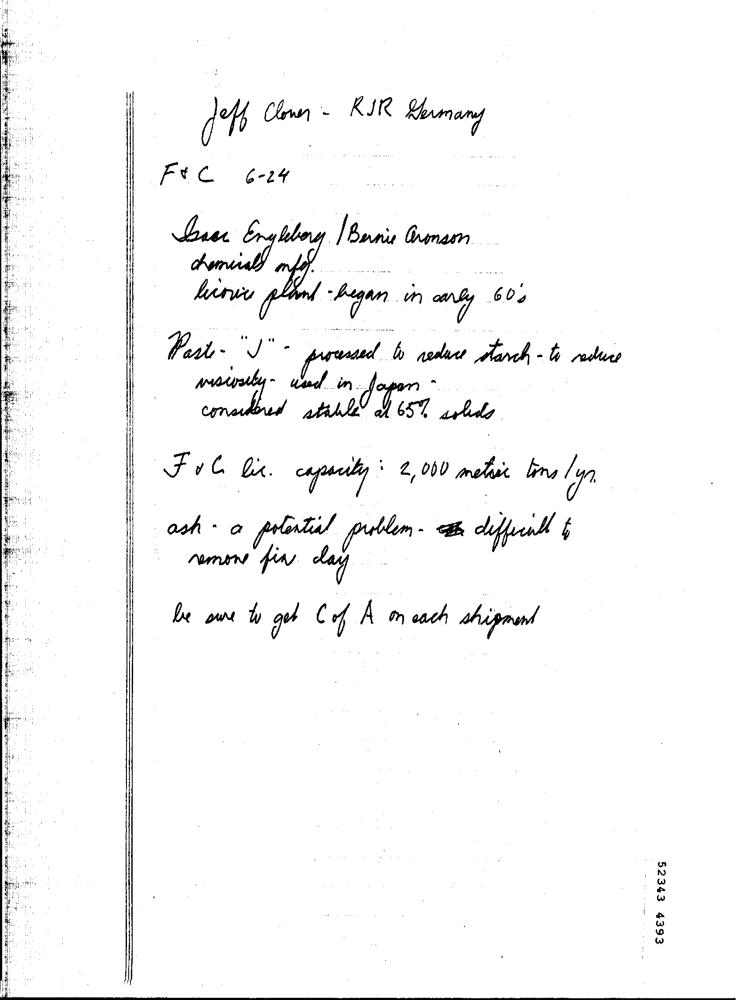 Jeff Clover - RJR Germany
F & C 6-24
Isaac Engleberg / Bernie Aronson
chemicals mfg.
licorice plant - began in early 60's
Paste - "J" - processed to reduce starch - to reduce
viscosity - used in Japan -
considered stable at 65% solids
F & C lic. capacity : 2,000 metric tons / yr.
ash - a potential problem - difficult to
remove fine clay
be sure to get C of A on each shipment
52343 4393